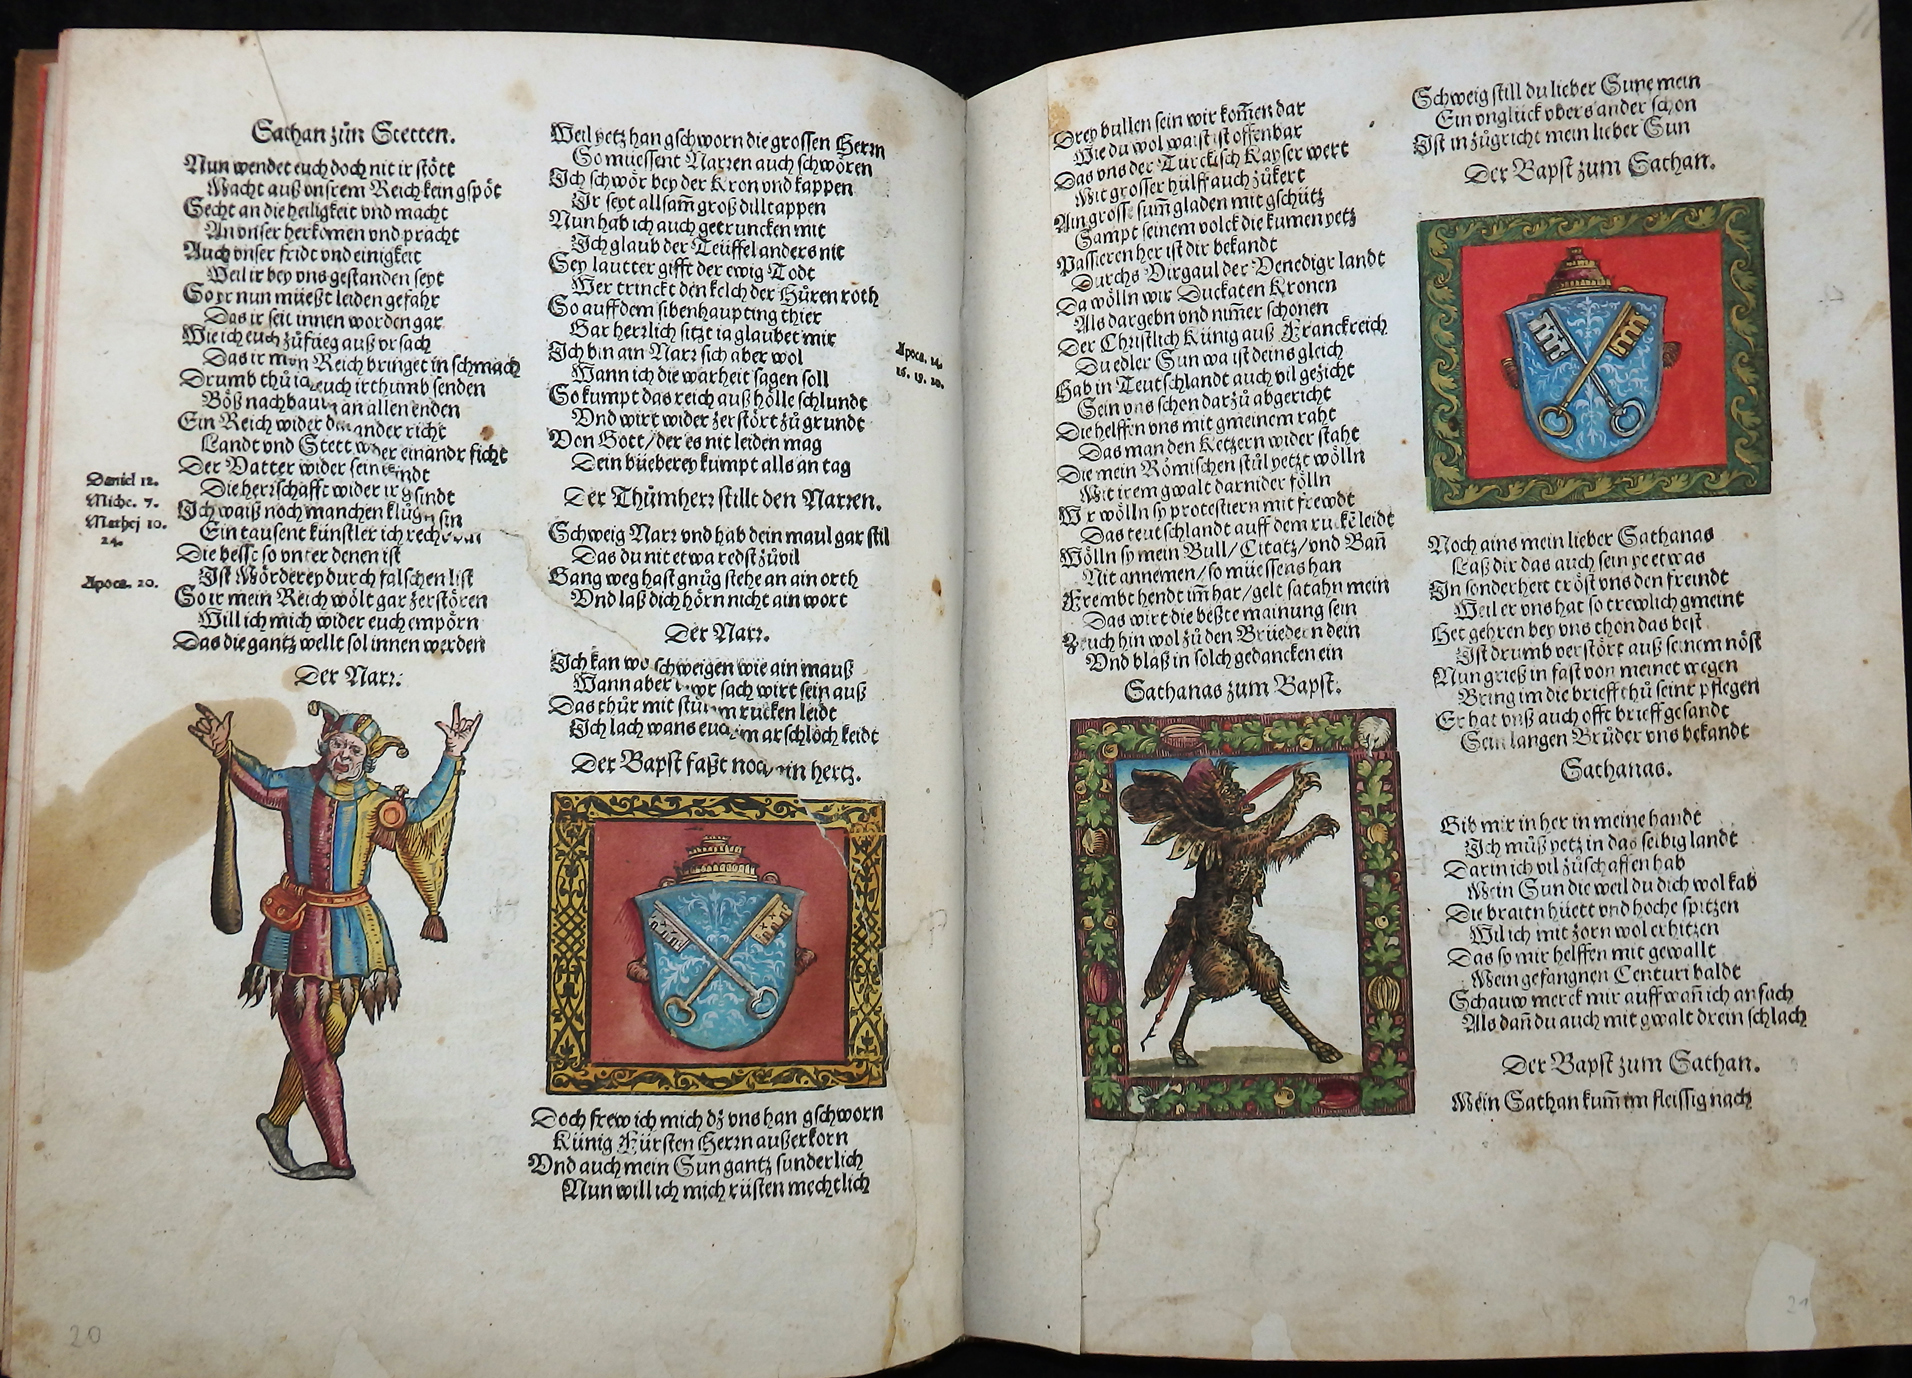 Sathan zůn Stetten.
Nun wendet euch doch nit ir stött
Macht auß vnsrem Reich kein gspöt
Secht an die heiligkeit vnd macht
An vnser herkōmen vnd pracht
Auch vnser fridt vnd einigkeit
Weil ir bey vns gestanden seyt
So yr nun müeßt leiden gefahr
Das ir seit innen worden gar
Wie ich euch zůfüeg auß vrsach
Das ir Reich bringet in schmach
Drumb thů euch irthumb senden
Böß nachbaurn an allen enden
Ein Reich wider ander richt
Landt vnd Stett wider einandr ficht
Der Vatter wider sein kindt
Die herrschafft wider ir gsindt
Ich waiß noch manchen klůgn sin
Ein tausent künstler ich
Die beste so vnter denen ist
Ist Mörderey durch falschen list
So ir mein Reich wölt gar zerstören
Will ich mich wider euch empörn
Das die gantz wellt sol innen werden
Daniel 12.
Miche. 7.
Mathej 10.
24.
Apoca. 20.
Der Narr.
Weil yetz han gschworn die grossen Herrn
So müessent Narren auch schwören
Ich schwör bey der Kron vnd kappen
Ir seyt allsam̄ groß dilltappen
Nun hab ich auch getruncken mit
Ich glaub der Teüffel anders nit
Sey lautter gifft der ewig Todt
Wer trinckt den kelch der Hůren roth
So auff dem sibenhaupting thier
Gar herzlich sitzt ia glaubet mir
Ich bin ain Narr sich aber wol
Wann ich die warheit sagen soll
So kumpt das reich auß hölle schlundt
Vnd wirt wider zerstört zů grundt
Von Gott/der es nit leiden mag
Dein büeberey kumpt alls an tag
Apoca. 14.
16. 19. 20.
Der Thůmherr stillt den Narren.
Schweig Narr vnd hab dein maul gar stil
Das du nit etwa redst zůvil
Gang weg hast gnůg stehe an ain orth
Vnd laß dich hörn nicht ain wort
Der Narr.
Ich kan wol schweigen wie ain mauß
Wann aber vrsach wirt sein auß
Das thůr mit rucken leidt
Ich lach wans euch im arschlöch keidt
Der Bapst faßt noch ein hertz.
Doch frew ich mich dz vns han gschworn
Künig Fürsten Herrn außerkorn
Vnd auch mein Sun gantz sunderlich
Nun will ich mich rüsten mechtlich
20
Drey bullen sein wir kom̄en dar
Wie du wol waist ist offenbar
Das vns der Türckisch Kayser wert
Mit grosser hülff auch zůkert
Ain grosse sum̄ gladen mit gschütz
Sampt seinem volck die kumen yetz
Passieren her ist dir bekandt
Durchs Virgaul der Venedigr landt
Da wölln wir Duckaten Kronen
Als dargebn vnd nim̄er schonen
Der Christlich Künig auß Franckreich
Du edler Sun wa ist deins gleich
Hab in Teutschlandt auch vil gezicht
Sein vns schon darzů abgericht
Die helffen vns mit gmeinem raht
Das man den Ketzern wider staht
Die mein Römischen stůl yetzt wölln
Mit irem gwalt darnider fölln
Wir wölln sy protestiern mit frewdt
Das teutschlandt auff dem rucke leidt
Wölln sy mein Bull/Citatz/vnd Ban̄
Nit annemen/so müessens han
Frembt hendt im̄ har/gelt satahn mein
Das wirt die beßte mainung sein
Zeuch hin wol zů den Brüedern dein
Vnd blaß in solch gedancken ein
Sathanas zum Bapst.
Schweig still du lieber Sune mein
Ein vnglück vbers ander schon
Ist in zůgricht mein lieber Sun
Der Bapst zum Sathan.
Noch ains mein lieber Sathanas
Laß dir das auch sein ye etwas
In sonderheit tröst vns den freindt
Weil er vns hat so trewlich gmeint
Het gehren bey vns thon das best
Ist drumb verstört auß seinem nöst
Nun grieß in fast von meinet wegen
Bring im die brieff thů seinr pflegen
Er hat vnß auch offt brieff gesandt
Sein langen Brüder vns bekandt
Sathanas.
Gib mir in her in meine handt
Ich můß yetz in das selbig landt
Darin ich vil zůschaffen hab
Mein Sun die weil du dich wol hab
Die braitn hüett vnd hoche spitzen
Wil ich mit zorn wol erhitzen
Das sy mir helffen mit gewallt
Mein gefangnen Centuri baldt
Schauw merck mir auff wan̄ ich anfach
Als dan̄ du auch mit gwalt drein schlach
Der Bapst zum Sathan.
Mein Sathan kum̄ im fleissig nach
21